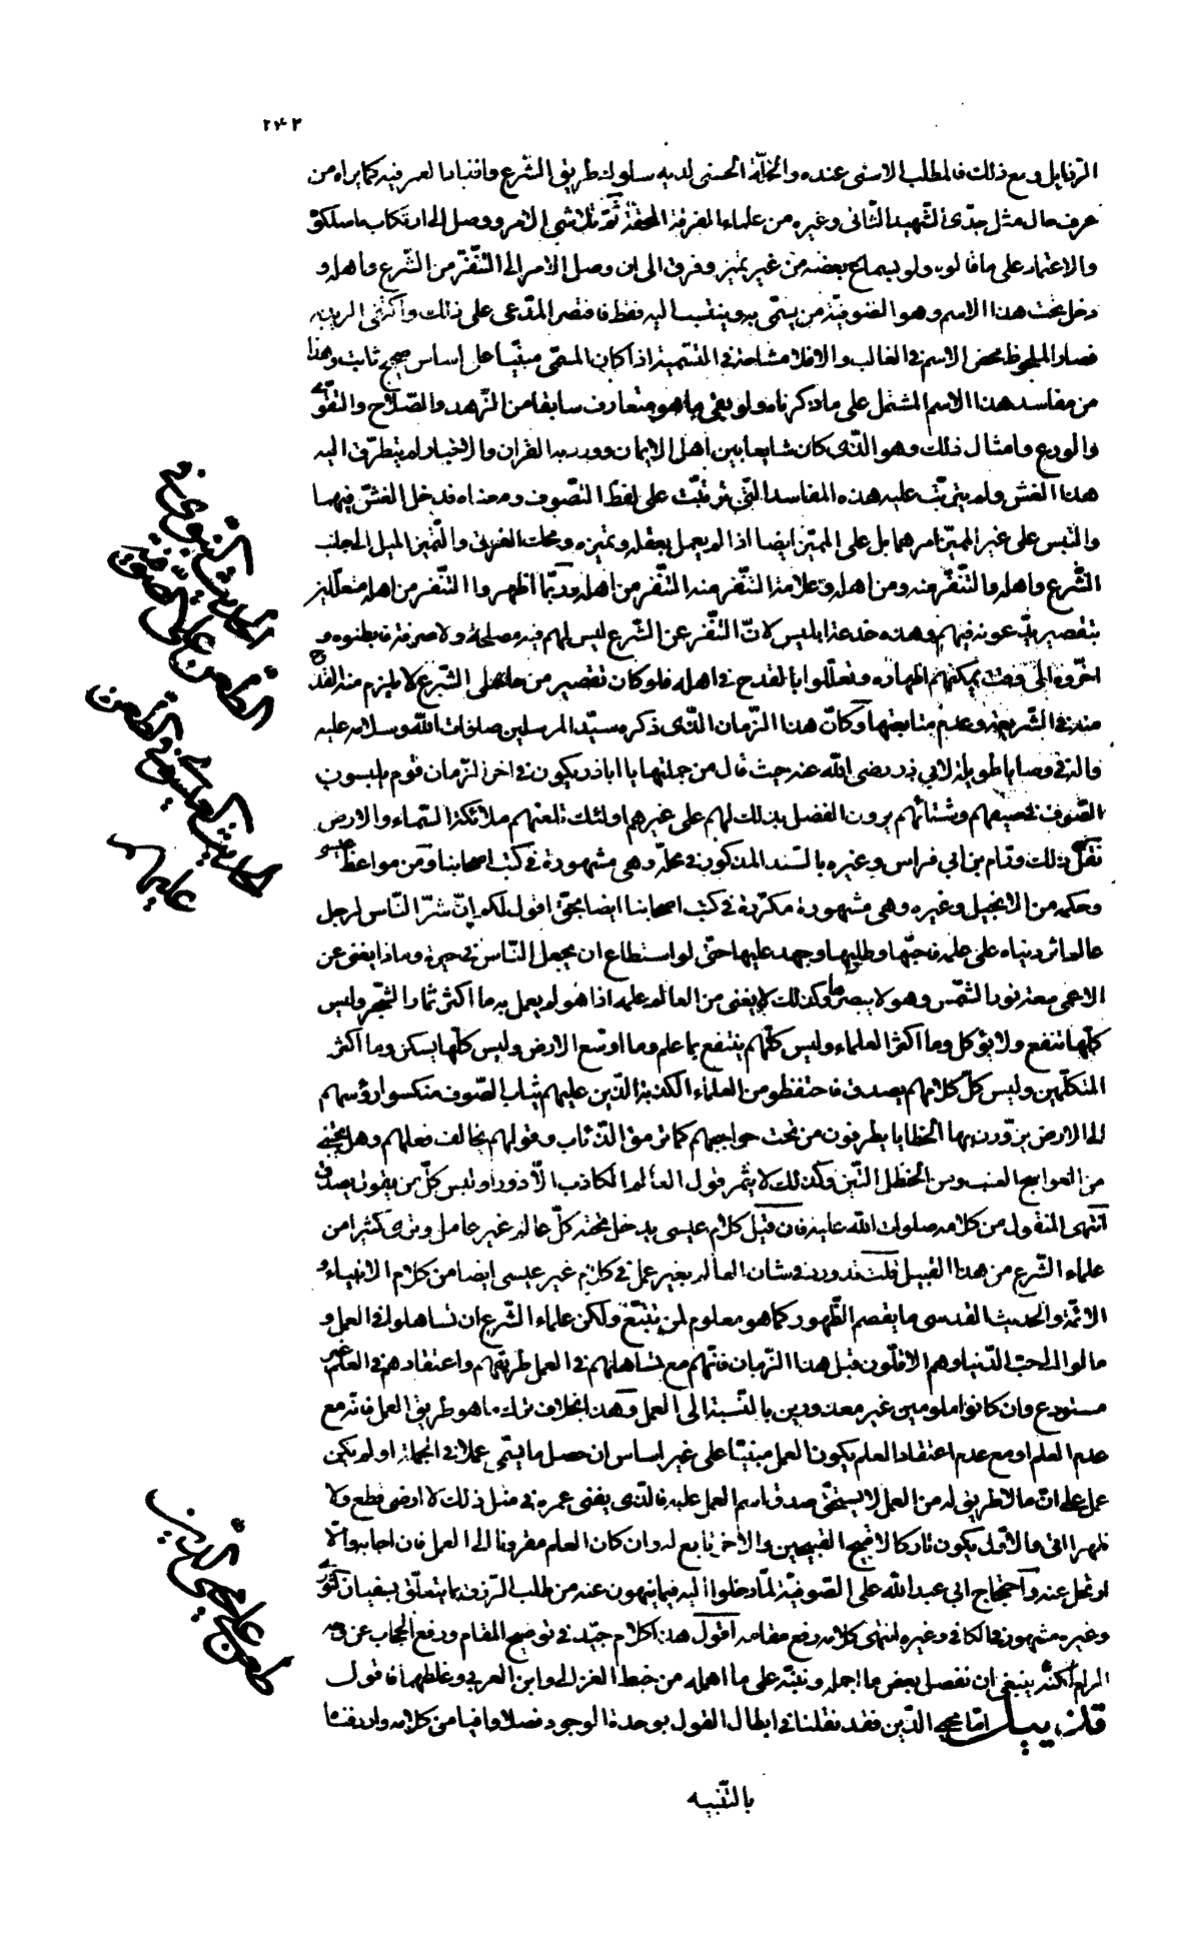 ٢٤٢
الرذايل ومع ذلك فالمطلب الاسنى عنده والخلّة الحسنى لديه سلوك طريق الشرع وانقياد العمر فيه كما يراه من
عرف حال مثل جدّي الشهيد الثاني وغيره من علماء الفرقة المحقة ثمّ تلاشى الامر ووصل الى ارتكاب ما سلكوْ
والاعتماد على ما قالوه ولو بسماع بعضه من غير تميز وفرق الى ان وصل الامر الى التنفّر من الشرع واهله و
دخل تحت هذا الاسم وهو الصوفيّة من يسمّى به وينتسب اليه فقط فاقتصر المدّعى على ذلك واكتفى المريد به
فصار الملحوظ محض الاسم في الغالب والا فلا مشاحة في التسمية اذا كان المسمّى مبنيّا على اساس صحيح ثابت وهذا
من مفاسد هذا الاسم المشتمل على ما ذكرناه ولو بقي ما هو متعارف سابقا من الزهد والصّلاح والتقوى
والورع وامثال ذلك وهو الذي كان شايعا بين اهل الايمان وورد به القران والاخبار لم يتطرّق اليه
هذا الغش ولم يترتّب عليه هذه المفاسد التي ترتّبت على لفظ التصّوف ومعناه فدخل الغشّ فيهما
والتبس على غير المميّز امرهما بل على المميّز ايضا اذا لم يعمل بعقله وتميزه ومحك الفرق والتميز الميل الى جانب
الشّرع واهله والتنفّر عنه ومن اهله وعلامة التنفر منه التنفّر من اهله وربّما اظهروا التنفر من اهله متعلّلين
بتقصير يدّعونه فيهم وهذه خدعة ابليس لانّ التنفّر عن الشرع ليس لهم فيه مصلحة ولا صرفة فابطنوه و
اخّروه الى وقت يمكنهم اظهاره وتعلّلوا بالقدح في اهله فلو كان تقصير من حاملى الشّرع لا يلزم منه القدح
منه في الشريعة وعدم متابعتها وكانّ هذا الزمان الذي ذكره سيّد المرسلين صلوات الله وسلامه عليه
واله في وصايا طويلة لابي ذر رضى الله عنه حيث قال من جملتها يا اباذر يكون في اخر الزمان قوم يلبسون
الصّوف في صيفهم وشتائهم يرون الفضل بذلك لهم على غيرهم اولئك تلعنهم ملائكة السّماء والارض
نقل ذلك ورّام بن ابي فراس وغيره بالسّند المذكور في محلّه وهي مشهورة في كتب اصحابنا ومن مواعظ عيسى
وحكمه من الانجيل وغيره وهي مشهورة مكرّرة في كتب اصحابنا ايضا بحق اقول لكم انّ شرّ النّاس لرجل
عالم اثر دنياه على علمه فاحبّها وطلبها وجهد عليها حتّى لو استطاع ان يجعل النّاس في حيرة وماذا يغنى عن
الاعمى سعة نور الشمّس وهو لا يبصرها وكذلك لا يغنى من العالم علمه اذا هو لم يعمل به ما اكثر ثمار الشّجر وليس
كلّها تنفع ولا يؤكل وما اكثر العلماء وليس كلّهم ينتفع بما علم وما اوسع الارض وليس كلّها يسكن وما اكثر
المتكلّمين وليس كلّ كلامهم يصدق فاحتفظوا من العلماء الكذبة الذين عليهم ثياب الصّوف منكسوا رؤسهم
الى الارض يزوّرون بها الخطايا يطرفون من تحت حواجبهم كما ترمق الذئاب وقولهم يخالف فعلهم وهل يجتنى
من العواسج العنب ومن الحنظل التّين وكذلك لا يثمر قول العالم الكاذب الّا زورا وليس كلّ من يقول يصدق
انتهى المنقول من كلامه صلوات الله عليه فان قيل كلام عيسى يدخل تحته كلّ عالم غير عامل ونرى كثيرا من
علماء الشّرع من هذا القبيل قلت قد ورد في شان العالم بغير عمل في كلام غير عيسى ايضا من كلام الانبياء و
الائمّة والحديث القدسى ما يقصم الظّهور كما هو معلوم لمن تتبّع ولكن علماء الشّرع ان تساهلوا في العمل و
مالوا الى حبّ الدّنيا وهم الاقلّون قبل هذا الزمان فانّهم مع تساهلهم في العمل طريقهم واعتقادهم في العلم غير
مستودع وان كانوا ملومين غير معذورين بالنّسبة الى العمل وهذا بخلاف ترك ما هو طريق العمل فانّه مع
عدم العلم او مع عدم اعتقاد العلم يكون العمل مبنيّا على غير اساس ان حصل ما يسمّى عملا في الجملة او لم يكن
عمل على انّ ما لا طريق له من العمل لا يستحقّ صدق اسم العمل عليه فالذي يفنى عمره في مثل ذلك لا ارضى قطع ولا
ظهرا ابقى والاوّل يكون تاركا لاقبح القبيحين والاخر تابع له وان كان العلم مقرونا الى العمل فان اجابه والّا
ارتحل عنه واحتجاج ابي عبد الله على الصّوفيّة لمّا دخلوا اليه فيما ينهون عنه من طلب الرّزق بما يتعلّق بسفيان الثورى
وغيره مشهور في الكافي وغيره انتهى كلامه رفع مقامه اقول هذا كلام جيّد في توضيح المقام ورفع الحجاب عن وجه
المرام لكنّه ينبغي ان نفصل بعض ما اجمله وننبّه على ما اهمله من خبط الغزالي وابن العربي وغلطهما فاقول
تذييل امّا محيي الدّين فقد نقلنا في ابطال القول بوحدة الوجود فصلا وافيا من كلامه واردفنا
بالتّنبيه
الحديث النبوي في
الطعن على الصّوفية
الحديث العيسوي في الطعن
عليهم
طعن على محيى الدين